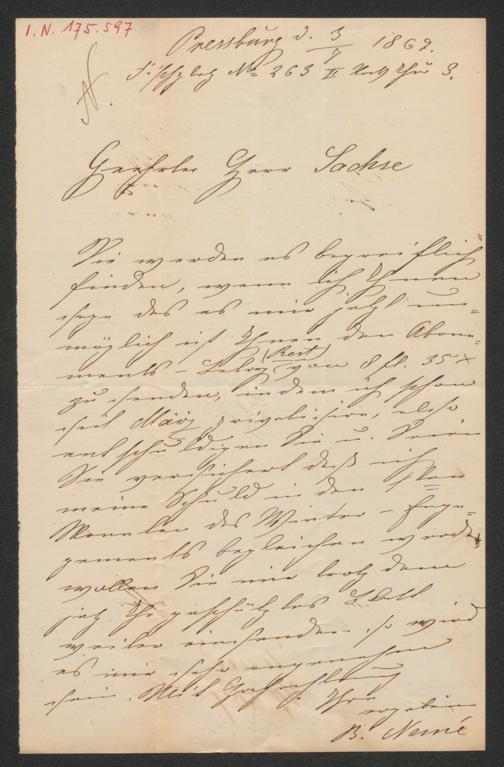 I. N. 175.597
Pressburg d. 3/7 1869.
Fischplatz No 263 II Stock Thür 3.
N.
Geehrter Herr Sachse
Sie werden es begreiflich
finden, wenn ich Ihnen
sage das es mir jetzt un-
möglich ist Ihnen den Abone-
ments-Betrag (Rest) von 8 fl. 35 x
zu senden, indem ich schon
seit März privatisire, also
entschuldigen Sie u. seien
Sie versichert daß ich
meine Schuld in den
Monaten des Winter-Enga-
gements begleichen werde,
wollen Sie mir trotz dem
Ihr geschätztes Blatt
weiter einsenden so wird
es mir sehr angenehm
sein. Mit Hochachtung
Ihr
ergebener
B. Nemé